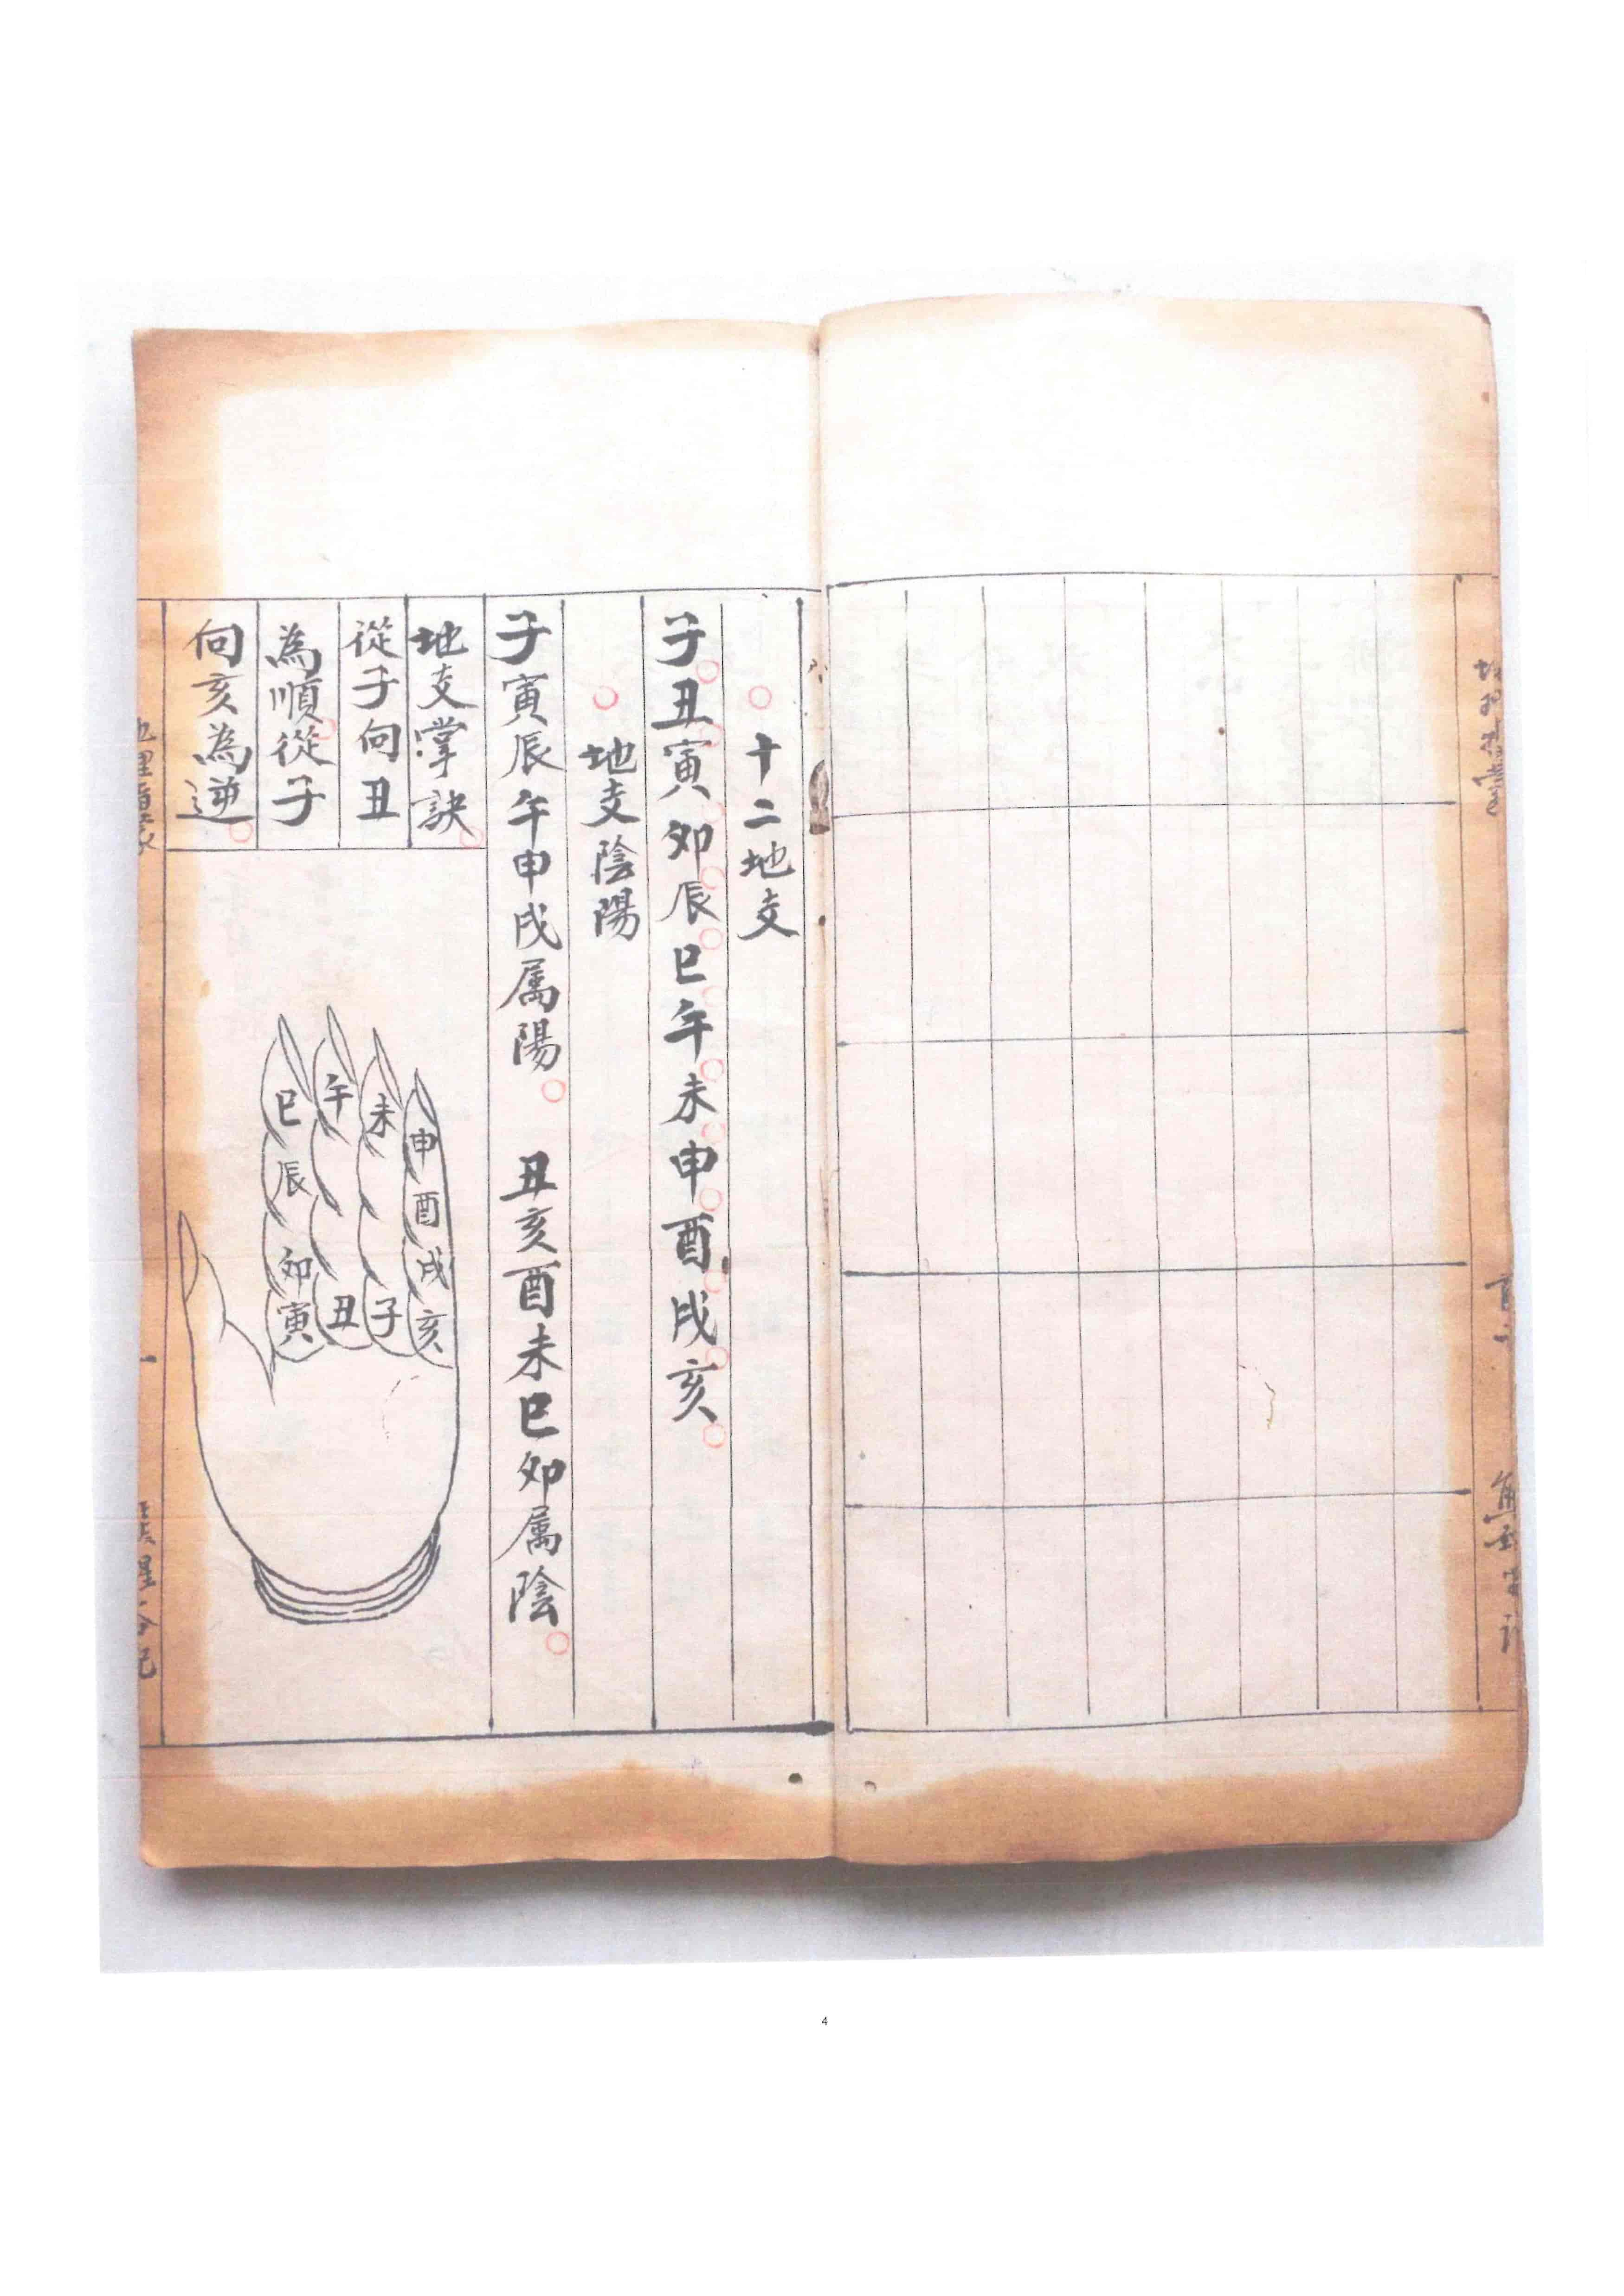 十二地支
子丑寅卯辰巳午未申酉戌亥
地支陰陽
子寅辰午申戌属陽 丑亥酉未巳卯属陰
地支掌訣
從子向丑
為順從子
向亥為逆
巳 午 未 申
辰 酉
卯 戌
寅 丑 子 亥
4